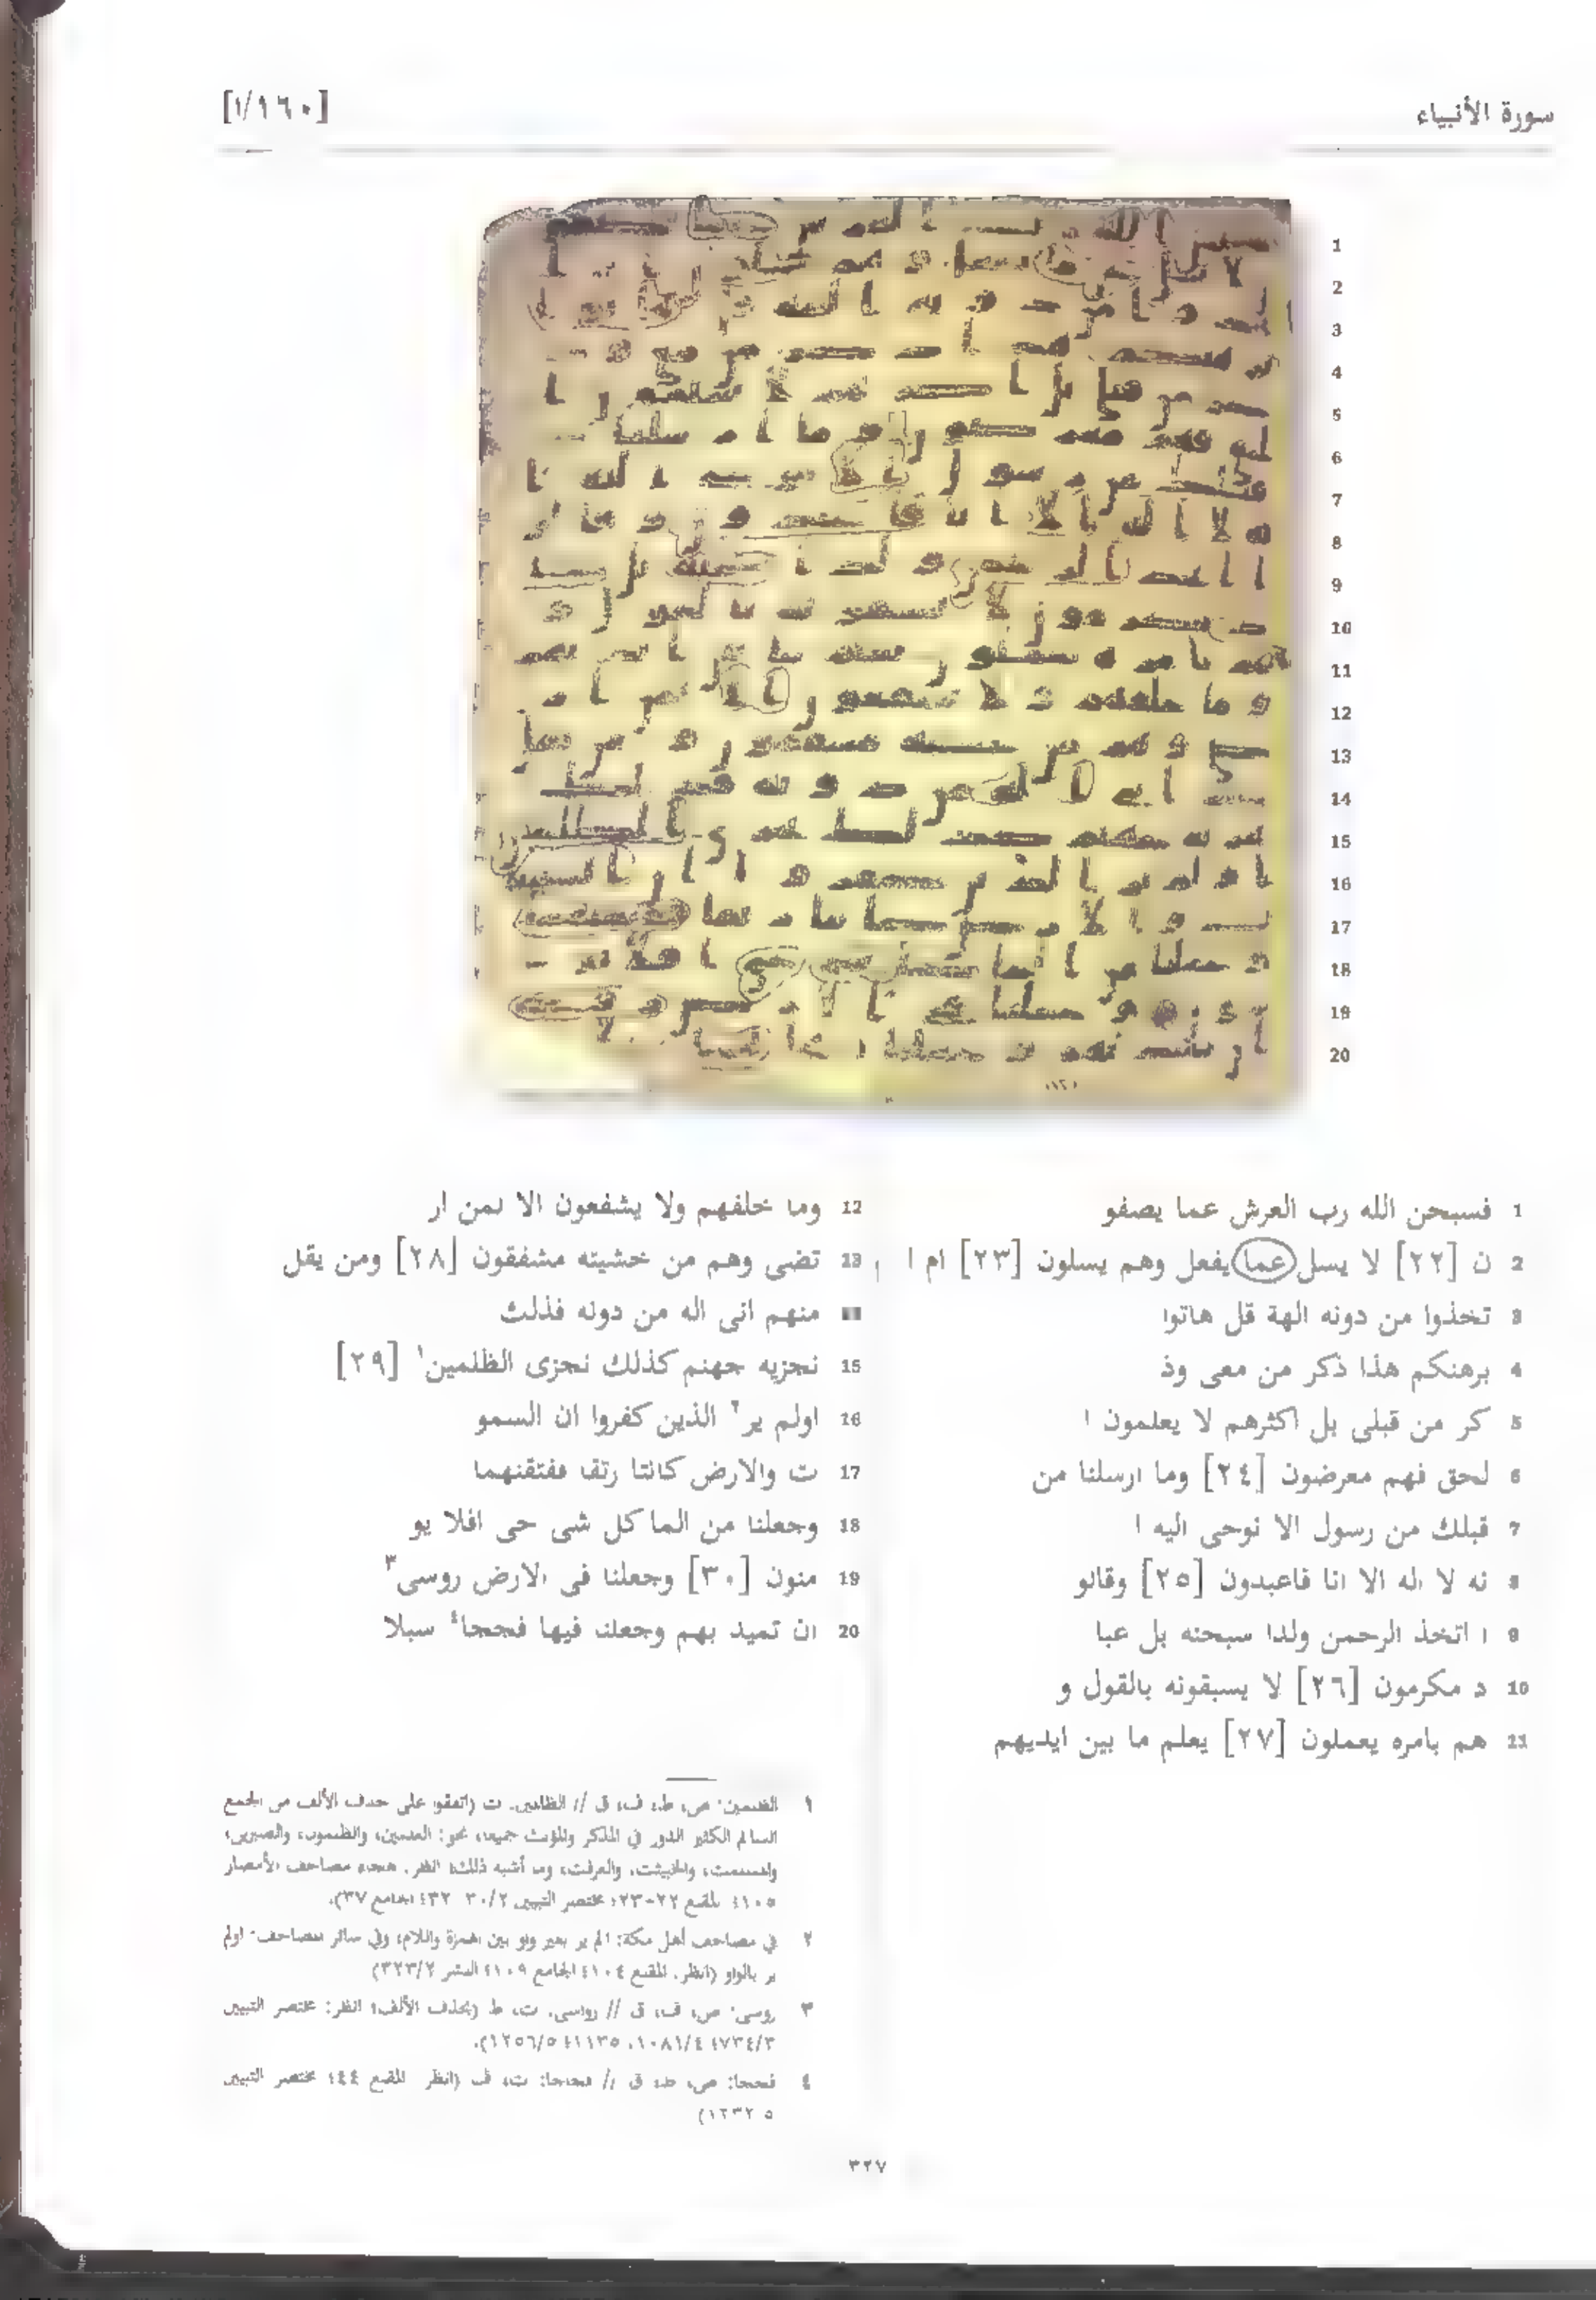 [١/١٦٠]
سورة الأنبياء
1 فسبحن الله رب العرش عما يصفو
2 ن [٢٢] لا يسل عما يفعل وهم يسلون [٢٣] ام ا
3 تخذوا من دونه الهة قل هاتوا
4 برهنكم هذا ذكر من معى وذ
5 كر من قبلى بل اكثرهم لا يعلمون ا
6 لحق فهم معرضون [٢٤] وما ارسلنا من
7 قبلك من رسول الا نوحى اليه ا
8 نه لا اله الا انا فاعبدون [٢٥] وقالو
9 ا اتخذ الرحمن ولدا سبحنه بل عبا
10 د مكرمون [٢٦] لا يسبقونه بالقول و
11 هم بامره يعملون [٢٧] يعلم ما بين ايديهم
12 وما خلفهم ولا يشفعون الا لمن ار
13 تضى وهم من خشيته مشفقون [٢٨] ومن يقل
منهم انى اله من دونه فذلك
15 نجزيه جهنم كذلك نجزى الظلمين١ [٢٩]
16 اولم ير٢ الذين كفروا ان السمو
17 ت والارض كانتا رتقا ففتقنهما
18 وجعلنا من الما كل شى حى افلا يو
19 منون [٣٠] وجعلنا فى الارض روسى٣
20 ان تميد بهم وجعلنا فيها فججا٤ سبلا
١ الظلمين: ص، ط، ف، ق // الظالمين: ت (اتفقوا على حذف الألف من الجمع
السالم الكثير الدور في المذكر والمؤنث جميعا، نحو: العلمين، والظلمون، والصبرين،
والخبيثت، والغرفت، وما أشبه ذلك؛ انظر: هجاء مصاحف الأمصار
١٠٥؛ المقنع ٢٢-٢٣؛ مختصر التبيين ٣٠/٢ ٣٢؛ الجامع ٣٧).
٢ في مصاحف أهل مكة: الم ير بغير واو بين الهمزة واللام، وفي سائر المصاحف: اولم
ير بالواو (انظر: المقنع ١٠٤؛ الجامع ١٠٩؛ النشر ٣٢٣/٢)
٣ روسى: ص، ف، ق // رواسى: ت، ط (بحذف الألف؛ انظر: مختصر التبيين
٧٣٤/٣؛ ١٠٨١/٤، ١١٣٥؛ ١٢٥٦/٥).
٤ فججا: ص، ط، ق // فجاجا: ت، ف (انظر المقنع ٤٤؛ مختصر التبيين
٥ ١٢٣٢)
٣٢٧